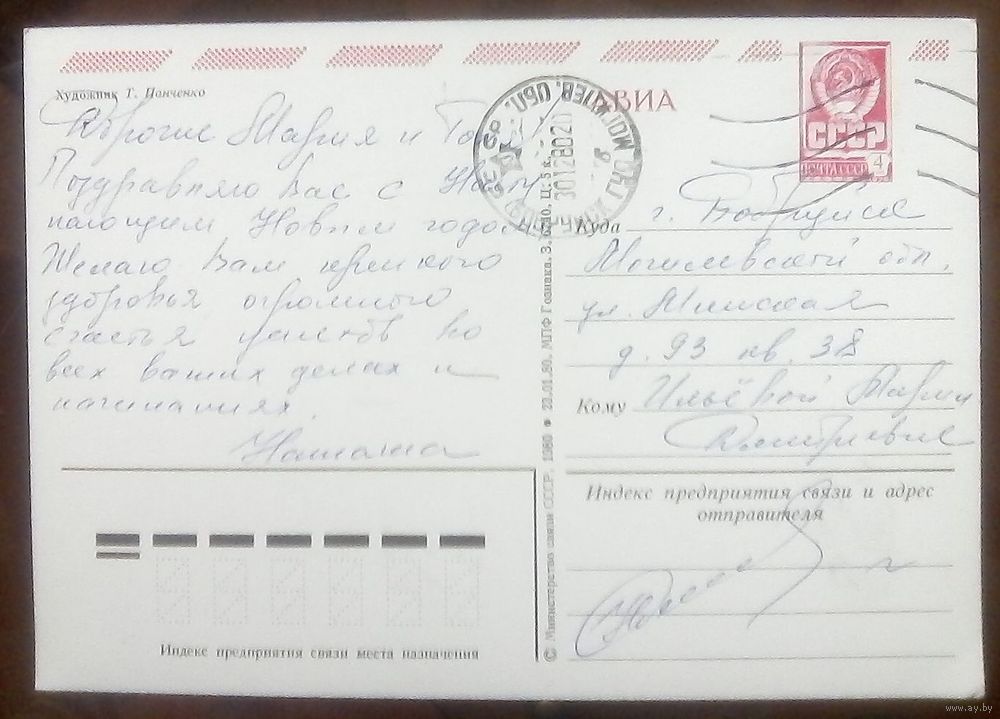 Художник Г. Панченко
АВИА
СССР
ПОЧТА СССР 4
Дорогие Мария и
Поздравляю Вас с Нас
пающим Новым годом
Желаю Вам крепкого
здоровья огромного
счастья успехов во
всех ваших делах и
начинаниях.
Наташа
МОГИЛЕВ. ОБЛ.
30128020
Куда г. Бобруйск
Могилевской обл.
ул. Минская
д. 93 кв. 38
Кому Ильёвой Марии
Дмитриевне
Индекс предприятия связи и адрес
отправителя
Индекс предприятия связи места назначения
© Министерство связи СССР, 1980 • 29.01.80. МПФ Гознака. З. Ц. 5 к.
www.ay.by